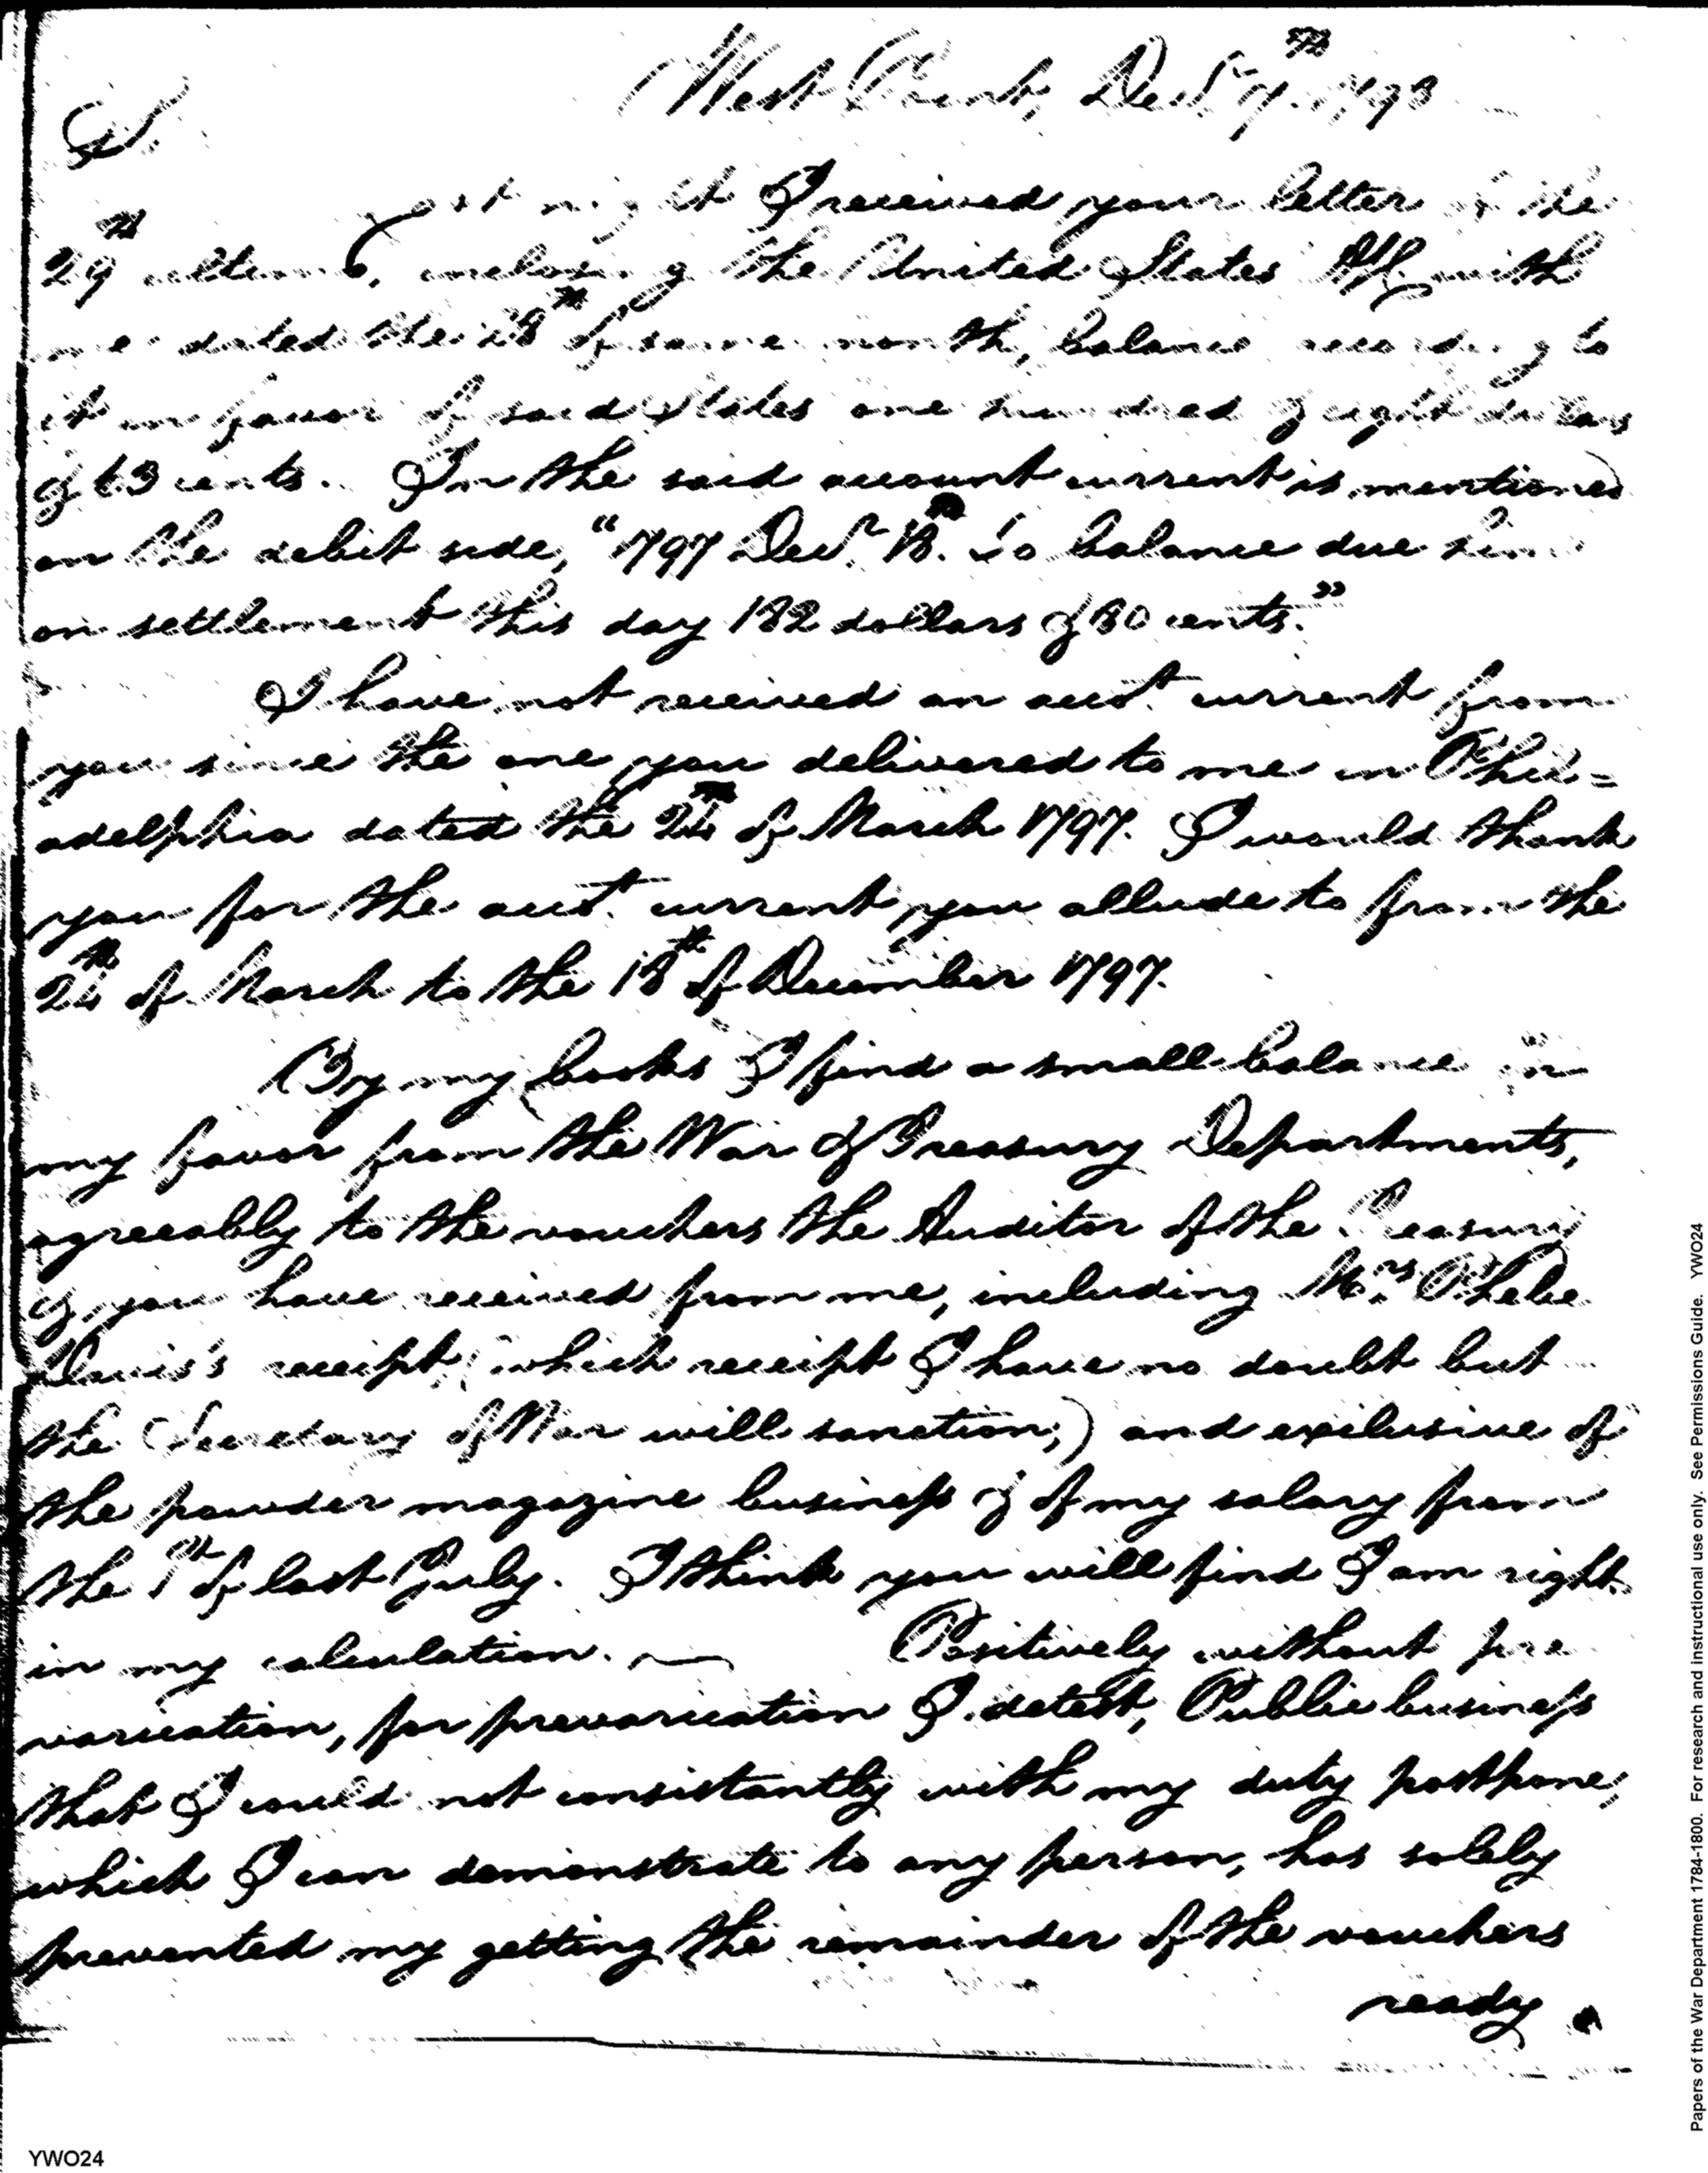 West Point, Decr. 7th. 1798
Sir.
Last night I received your letter of the
29th ultimo, inclosing the United States A/C with
me dated the 28th of same month, balance according to
it in favor of said States one hundred & eight dollars
& 63 cents. In the said account current is mentioned
on the debit side, "1797 Decr. 18th. to balance due him
on settlement this day 182 dollars & 80 cents."
I have not received an acct. current from
you since the one you delivered to me in Phil=
adelphia dated the 24th of March 1797. I would thank
you for the acct. current you allude to from the
24th of March to the 18th of December 1797.
By my books I find a small balance in
my favor from the War & Treasury Departments,
agreeably to the vouchers the Auditor of the Treasury
& you have received from me, including Mrs. Phebe
Davis's receipt, (which receipt I have no doubt but
the Secretary of War will sanction;) and exclusive of
the powder magazine business & of my salary from
the 1st of last July. I think you will find I am right
in my calculation. — Positively without pre
varication, for prevarication I detest, Public business
that I could not consistantly with my duty postpone,
which I can demonstrate to any person, has solely
prevented my getting the remainder of the vouchers
ready
YWO24
Papers of the War Department 1784-1800. For research and instructional use only. See Permissions Guide. YWO24